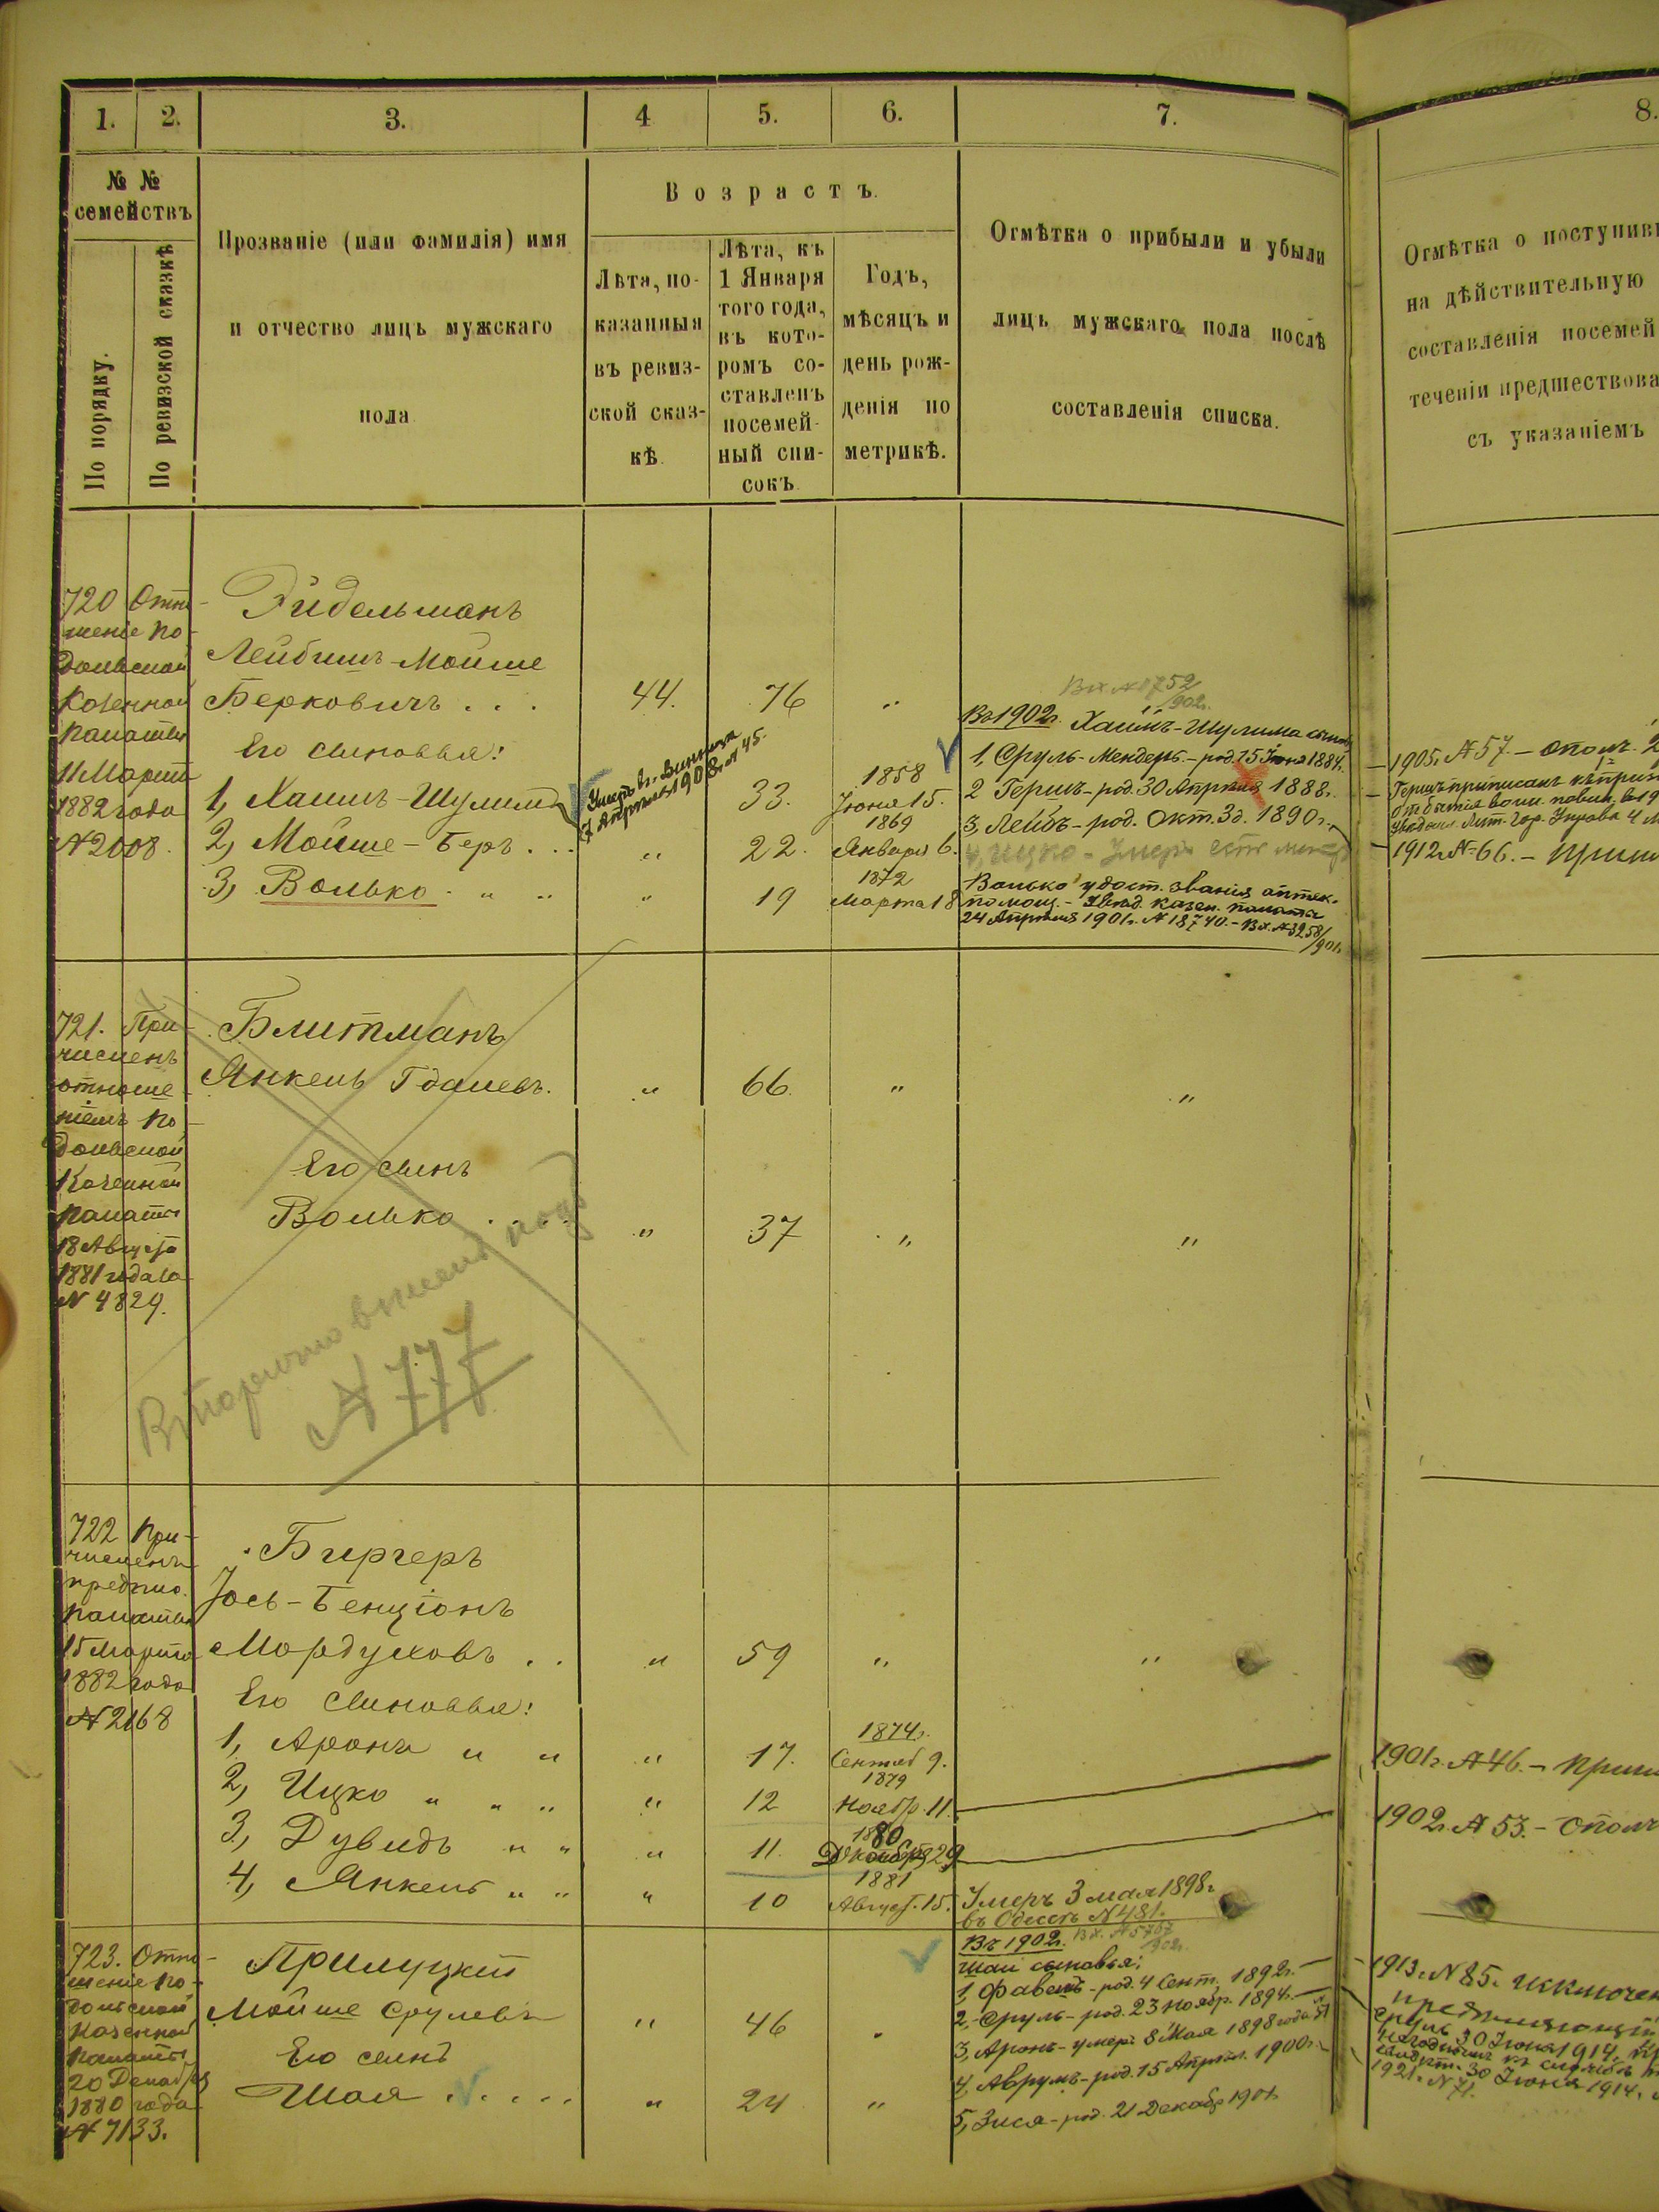 1.
2.
3.
4
5.
6.
7.
8.
№ №
семействъ
По порядку.
По ревизской сказкѣ
Прозваніе (или фамилія) имя
и отчество лицъ мужскаго
пола
Возрастъ.
Лѣта, по-
казанныя
въ ревиз-
ской сказ-
кѣ.
Лѣта, къ
1 Января
того года,
въ кото-
ромъ со-
ставленъ
посемей-
ный спи-
сокъ
Годъ,
мѣсяцъ и
день рож-
денія по
метрикѣ.
Отмѣтка о прибыли и убыли
лицъ мужскаго пола послѣ
составленія списка.
Отмѣтка о поступивш
на дѣйствительную
составленія посемей
теченіи предшествова
съ указаніемъ
720 Отно-
шеніе По-
дольской
Казенной
Палаты
11 Марта
1882 года
№ 2008.
Эйдельманъ
Лейбишъ-Мойше
Берковичъ . . . 44. 76 "
Его сыновья:
1, Хаимъ-Шулимъ 33. 1858 Іюня 15.
Умеръ въ г. Винница
7 Апрѣля 1908 г. № 45.
2, Мойше-Беръ . . . " 22. 1869 Января 6.
3, Волько " " " 19 1872 Марта 18
Вх. № 1752/902 г.
Въ 1902 г. Хаимъ-Шулима сыновья
1, Сруль-Мендель - род. 15 Іюня 1884 г.
2 Гершъ - род. 30 Апрѣля 1888 г.
3, Лейбъ - род. Окт. 3 д. 1890 г.
4, Ицко - Умеръ
Волько удост. званія аптек.
помощ. - Увѣд. казен. палаты
24 Апрѣля 1901 г. № 18740. - Вх. № 3258/901 г.
1905 г. № 57. - ополч.
Гершъ приписанъ къ
1912 г. № 66. -
721. При-
численъ
отноше-
ніемъ По-
дольской
Казенной
Палаты
18 Августа
1881 года за
№ 4829.
Блитманъ
Янкель Гдалевъ. " 66. " "
Его сынъ
Волько . . . . " 37 " "
Вторично внесенъ подъ
№ 777
722 При-
численъ
предпис.
Палаты
15 Марта
1882 года
№ 2168
Биргеръ
Іось-Бенціонъ
Мордуховъ . . " 59 " "
Его сыновья:
1, Аронъ " " " 17. 1874 г. Сентяб 9.
2, Ицко " " " " 12 1879 Ноябр. 11.
3, Дувидъ " " " 11. 1880 Декабря 29
4, Янкель " " " 10 1881 Август. 15.
Умеръ 3 мая 1898 г
въ Одессѣ № 481.
1901 г. № 46. -
1902 г. № 53. - Ополч
723. Отно-
шеніе По-
дольской
Казенной
Палаты
20 Декабря
1880 года
№ 7133.
Прилуцкій
Мойше Срулевъ " 46 "
Его сынъ
Шая . . . . . " 24 "
Въ 1902 г. Вх. № 5767/902 г.
Шаи сыновья:
1, Фавель - род. 4 Сент. 1892 г.
2, Сруль - род. 23 Ноябр. 1894.
3, Аронъ - умеръ 8 Мая 1898 года № 51
4, Аврумъ - род. 15 Апрѣл. 1900 г.
5, Зися - род. 21 Декабр 1901
1913 г. № 85.
Сруль 30 Іюня 1914.
30 Іюня 1914.
1921 г. № 71.